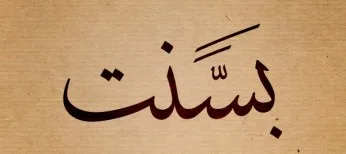 بسَّنت